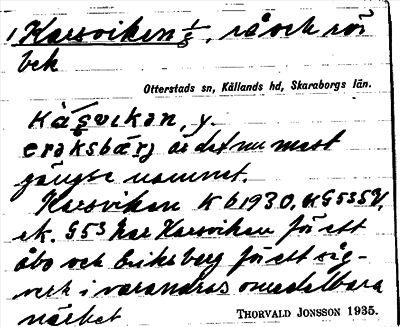 1 Karsviken 1/8, rå och rör
bek
Otterstads sn, Kållands hd, Skaraborgs län.
Kásvikan, y.
eraksbærj är det nu mest
gängse namnet.
Karsviken Kb 1930. KG 535
ek. G53 har Karsviken för ett
åbo och Eriksberg för ett såg-
verk i varandras omedelbara
närhet
THORVALD JONSSON 1935.